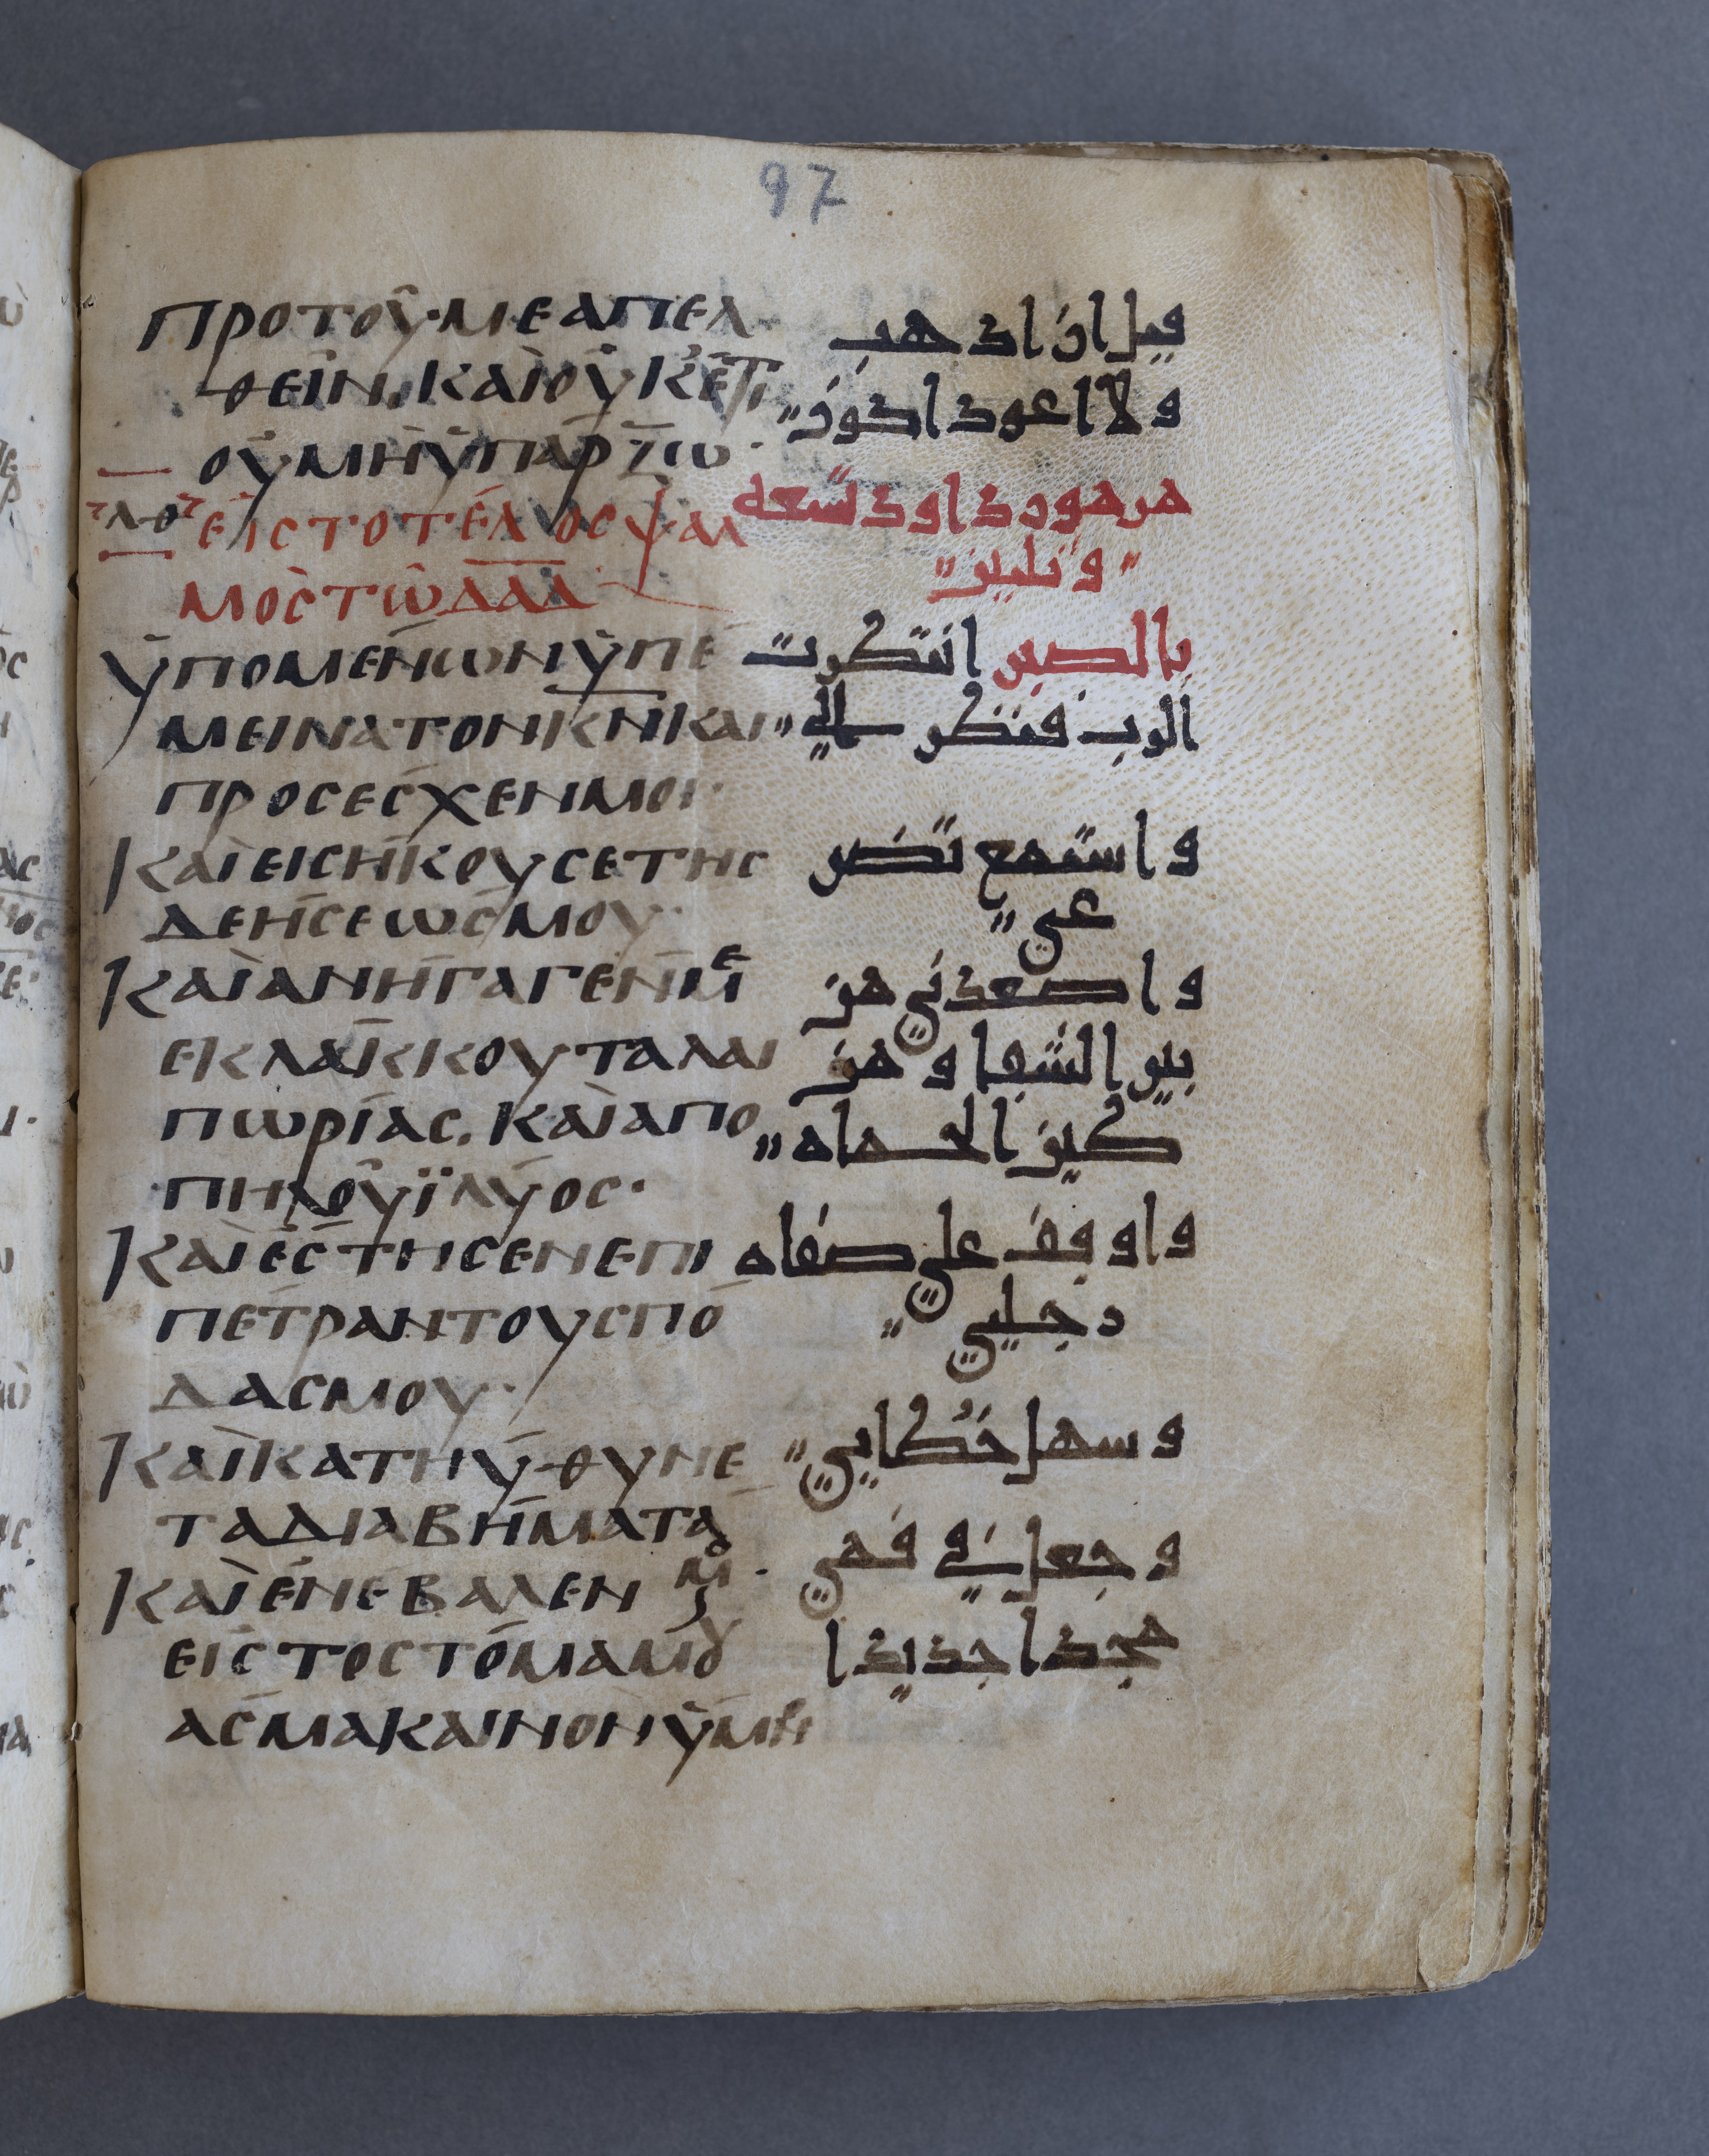 97
ΠΡΟΤΟῦ·ΜΕΑΠΕΛ
ΘΕῖΝ, ΚΑῚΟΥΚΈΤΙ
ΟΥΜῊΫΠΆΡΞΩ·
ΛΘ ΕἸΣΤΟΤΈΛΟΣΨΑΛ
ΜΟῚΣΤῶΔΑΔ
ΫΠΟΜΈΝΩΝΫΠΈ
ΜΕΙΝΑΤΟΝΚΝΚΑΙ
ΠΡΟΣΕΣΧΕΝΜΟΙ·
ΚΑῚΕΙΣΉΚΟΥΣΕΤΗΣ
ΔΕΉΣΕΩΣΜΟΥ·
ΚΑῚΑΝΉΓΑΓΕΝΜΕ
ΕΚΛΆΚΚΟΥΤΑΛΑΙ
ΠΩΡΊΑΣ. ΚΑῚΑΠΟ
ΠΗΛΟῦΪΛΎΟΣ·
ΚΑῚΈΣΤΗΣΕΝΕΠΙ
ΠΈΤΡΑΝΤΟΥΣΠΌ
ΔΑΣΜΟΥ·
ΚΑῚΚΑΤΗΎΘΥΝΕ
ΤΑΔΙΑΒΉΜΑΤΑ
ΜΟΥ·
ΚΑῚΈΝΕΒΑΛΕΝ
ΕΙΣΤΟΣΤΌΜΑΜΟΥ
ΑΣΜΑΚΑΙΝΟΝΫΜΝ
قبل ان اذهب
ولا اعود اكون
مزمور داود تسعه
وثلثين
بالصبر انتظرت
الرب فنظر الي
واستمع تضر
عي
واصعدني من
بير الشقا ومن
طين الحماه
واوقف علي صفاه
رجليي
وسهل خطايي
وجعل في فمي
مجدا جديدا